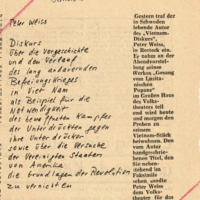 Peter Weiss
Diskurs
über die Vorgeschichte
und den Verlauf
des lang andauernden
Befreiungskrieges
in Viet Nam
als Beispiel für die
Notwendigkeit
des bewaffneten Kampfes
der Unterdrückten gegen
ihre Unterdrücker
sowie über die Versuche
der Vereinigten Staaten
von Amerika
die Grundlagen der Revolution
zu vernichten
Gestern traf der
in Schweden
lebende Autor
des „Vietnam-
Diskurs“,
Peter Weiss,
in Rostock ein.
Er nahm an der
Abendvorstel-
lung seines
Werkes „Gesang
vom Lusita-
nischen
Popanz“
im Großen Haus
des Volks-
theaters teil
und wird heute
und morgen
den Proben
zu seinem
Vietnam-Stück
beiwohnen. Den
vom Autor
handgeschrie-
benen Titel, den
Sie neben-
stehend im
Faksimile
sehen,
Peter Weiss
dem
Volkstheater
für das